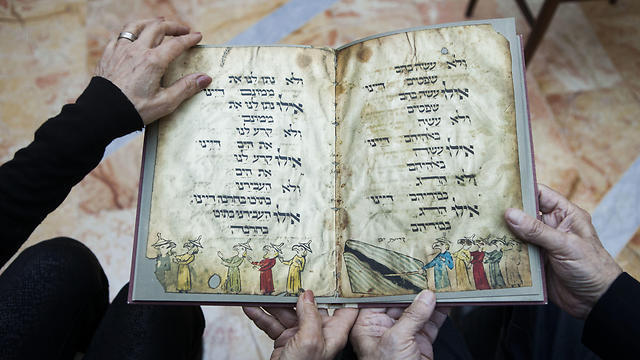 ולא עשה בהם
שפטים דיינו
אלו עשה בהם
שפטים
ולא עשה
באלהיהם דיינו
אלו עשה
באלהיהם
ולא הרג
בכוריהם דיינו
אלו הרג
בכוריהם
ולא נתן לנו את
ממונם דיינו
אלו נתן לנו את
ממונם
ולא קרע לנו
את הים דיינו
אלו קרע לנו
את הים
ולא העבירנו
בתוכו בחרבה דיינו
אלו העבירנו בתוכו
בחרבה